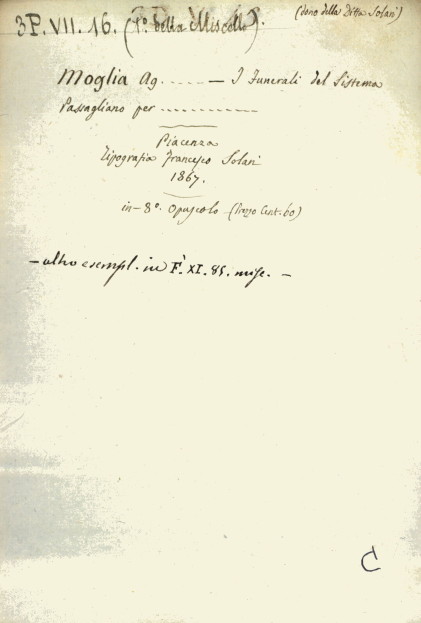 3P. VII. 16. (1º. della Miscell.). (dono della Ditta Solari)
Moglia Ag. ..... — I Funerali del Sistema
Passagliano per ..............
Piacenza
Tipografia Francesco Solari
1867.
in-8º. Opuscolo (Prezzo Cent. 60)
— altro esempl. in F. XI. 85. misc. —
C